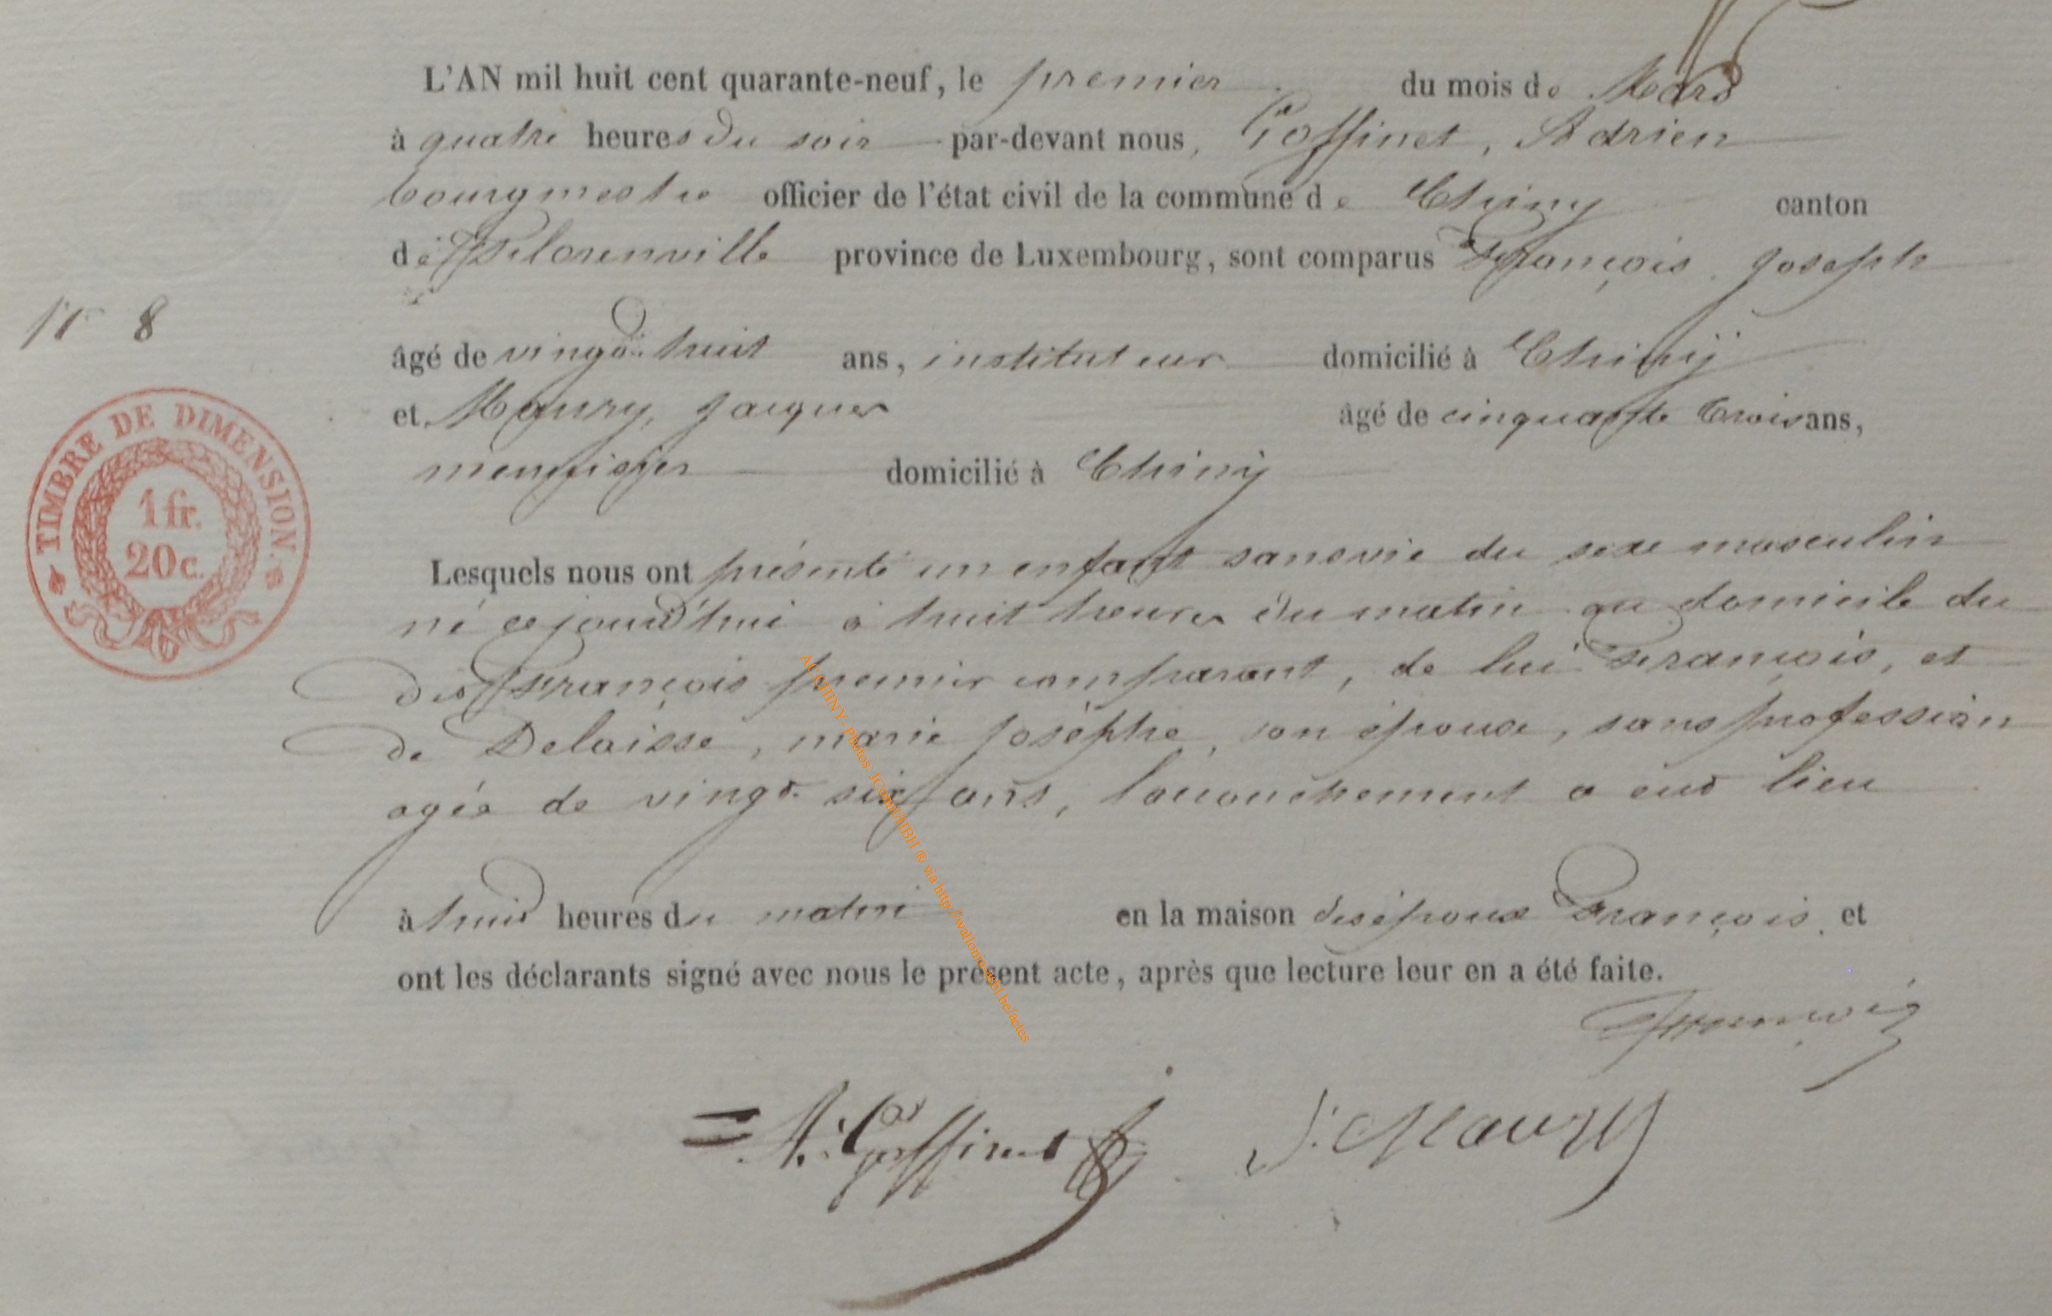 L'AN mil huit cent quarante-neuf, le premier du mois de Mars
à quatre heures du soir par-devant nous, Goffinet, Adrien
bourgmestre officier de l'état civil de la commune de Chiny canton
de Florenville province de Luxembourg, sont comparus François Joseph
N° 8
âgé de vingt-huit ans, instituteur domicilié à Chiny
et Maury, Jacques âgé de cinquante trois ans,
domicilié à Chiny
TIMBRE DE DIMENSION.
1 fr.
20 c.
Lesquels nous ont présenté un enfant sans vie du sexe masculin
né cejourd'hui à huit heures du matin au domicile du
dit François premier comparant, de lui François, et
de Delaisse, marie josèphe, son épouse, sans profession
agée de vingt-six ans, l'accouchement a eut lieu
à huit heures du matin en la maison des époux François, et
ont les déclarants signé avec nous le présent acte, après que lecture leur en a été faite.
François
A. Goffinet J. Maury